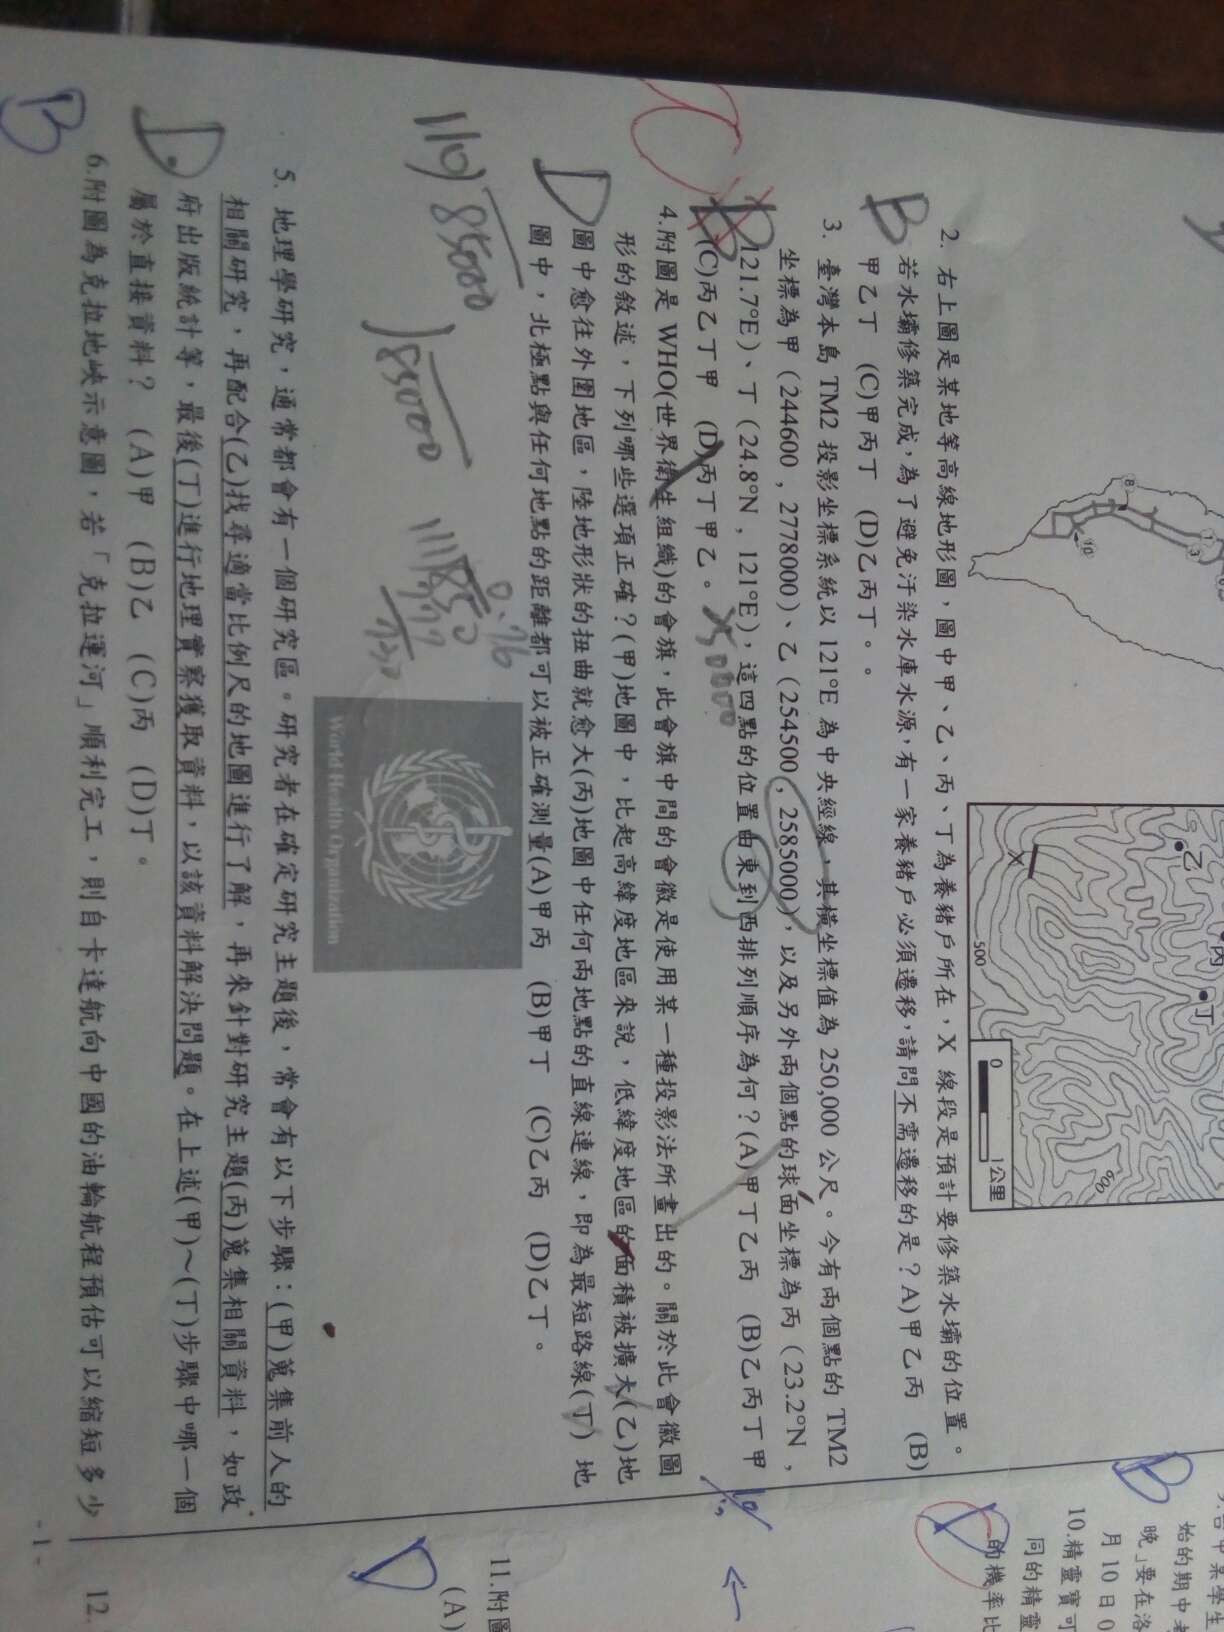 2. 右上圖是某地等高線地形圖，圖中甲、乙、丙、丁為養豬戶所在，X 線段是預計要修築水壩的位置。
若水壩修築完成，為了避免汙染水庫水源，有一家養豬戶必須遷移，請問不需遷移的是？A)甲乙丙 (B)
甲乙丁 (C)甲丙丁 (D)乙丙丁。。
B
乙
丙
丁
X
500
0
1公里
8
10
1
3
3. 臺灣本島 TM2 投影坐標系統以 121°E 為中央經線，其橫坐標值為 250,000 公尺。今有兩個點的 TM2
坐標為甲（244600，2778000）、乙（254500，2585000），以及另外兩個點的球面坐標為丙（23.2°N，
121.7°E）、丁（24.8°N，121°E），這四點的位置由東到西排列順序為何？(A)甲丁乙丙 (B)乙丙丁甲
(C)丙乙丁甲 (D)丙丁甲乙。
B
C
4.附圖是 WHO(世界衛生組織)的會旗，此會旗中間的會徽是使用某一種投影法所畫出的。關於此會徽圖
形的敘述，下列哪些選項正確？(甲)地圖中，比起高緯度地區來說，低緯度地區的面積被擴大(乙)地
圖中愈往外圍地區，陸地形狀的扭曲就愈大(丙)地圖中任何兩地點的直線連線，即為最短路線(丁) 地
圖中，北極點與任何地點的距離都可以被正確測量(A)甲丙 (B)甲丁 (C)乙丙 (D)乙丁。
D
World Health Organization
5. 地理學研究，通常都會有一個研究區。研究者在確定研究主題後，常會有以下步驟：(甲)蒐集前人的
相關研究，再配合(乙)找尋適當比例尺的地圖進行了解，再來針對研究主題(丙)蒐集相關資料，如政
府出版統計等，最後(丁)進行地理實察獲取資料，以該資料解決問題。在上述(甲)～(丁)步驟中哪一個
屬於直接資料？ (A)甲 (B)乙 (C)丙 (D)丁。
D.
6.附圖為克拉地峽示意圖，若「克拉運河」順利完工，則自卡達航向中國的油輪航程預估可以縮短多少
B
- 1 -
始的期中考
晚」要在洛
月 10 日 0
B
10.精靈寶可
同的精靈
的機率比
D
11.附圖
(A)
D
12.